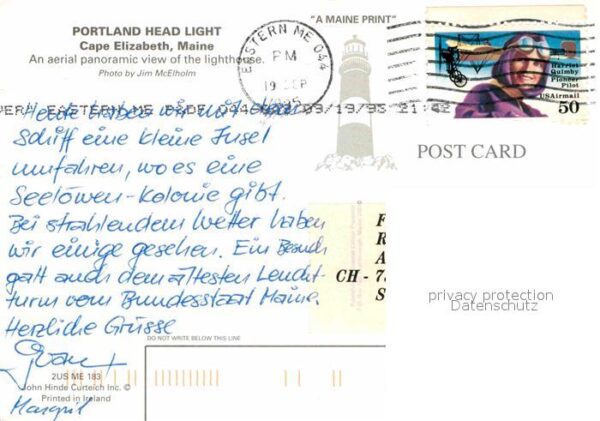 PORTLAND HEAD LIGHT
Cape Elizabeth, Maine
An aerial panoramic view of the lighthouse.
Photo by Jim McElholm
"A MAINE PRINT"
EASTERN ME 044
PM
19 SEP
EASTERN ME 09/19/93 21:42
Harriet
Quimby
Pioneer
Pilot
USAirmail
50
POST CARD
Heute haben wir mit dem
Schiff eine kleine Insel
umfahren, wo es eine
Seelöwen-Kolonie gibt.
Bei strahlendem Wetter haben
wir einige gesehen. Ein Besuch
galt auch dem ältesten Leucht-
turm vom Bundesstaat Maine.
Herzliche Grüsse
Margrit
F
R
A
CH - 7
S
privacy protection
Datenschutz
DO NOT WRITE BELOW THIS LINE
2US ME 183
John Hinde Curteich Inc. ©
Printed in Ireland